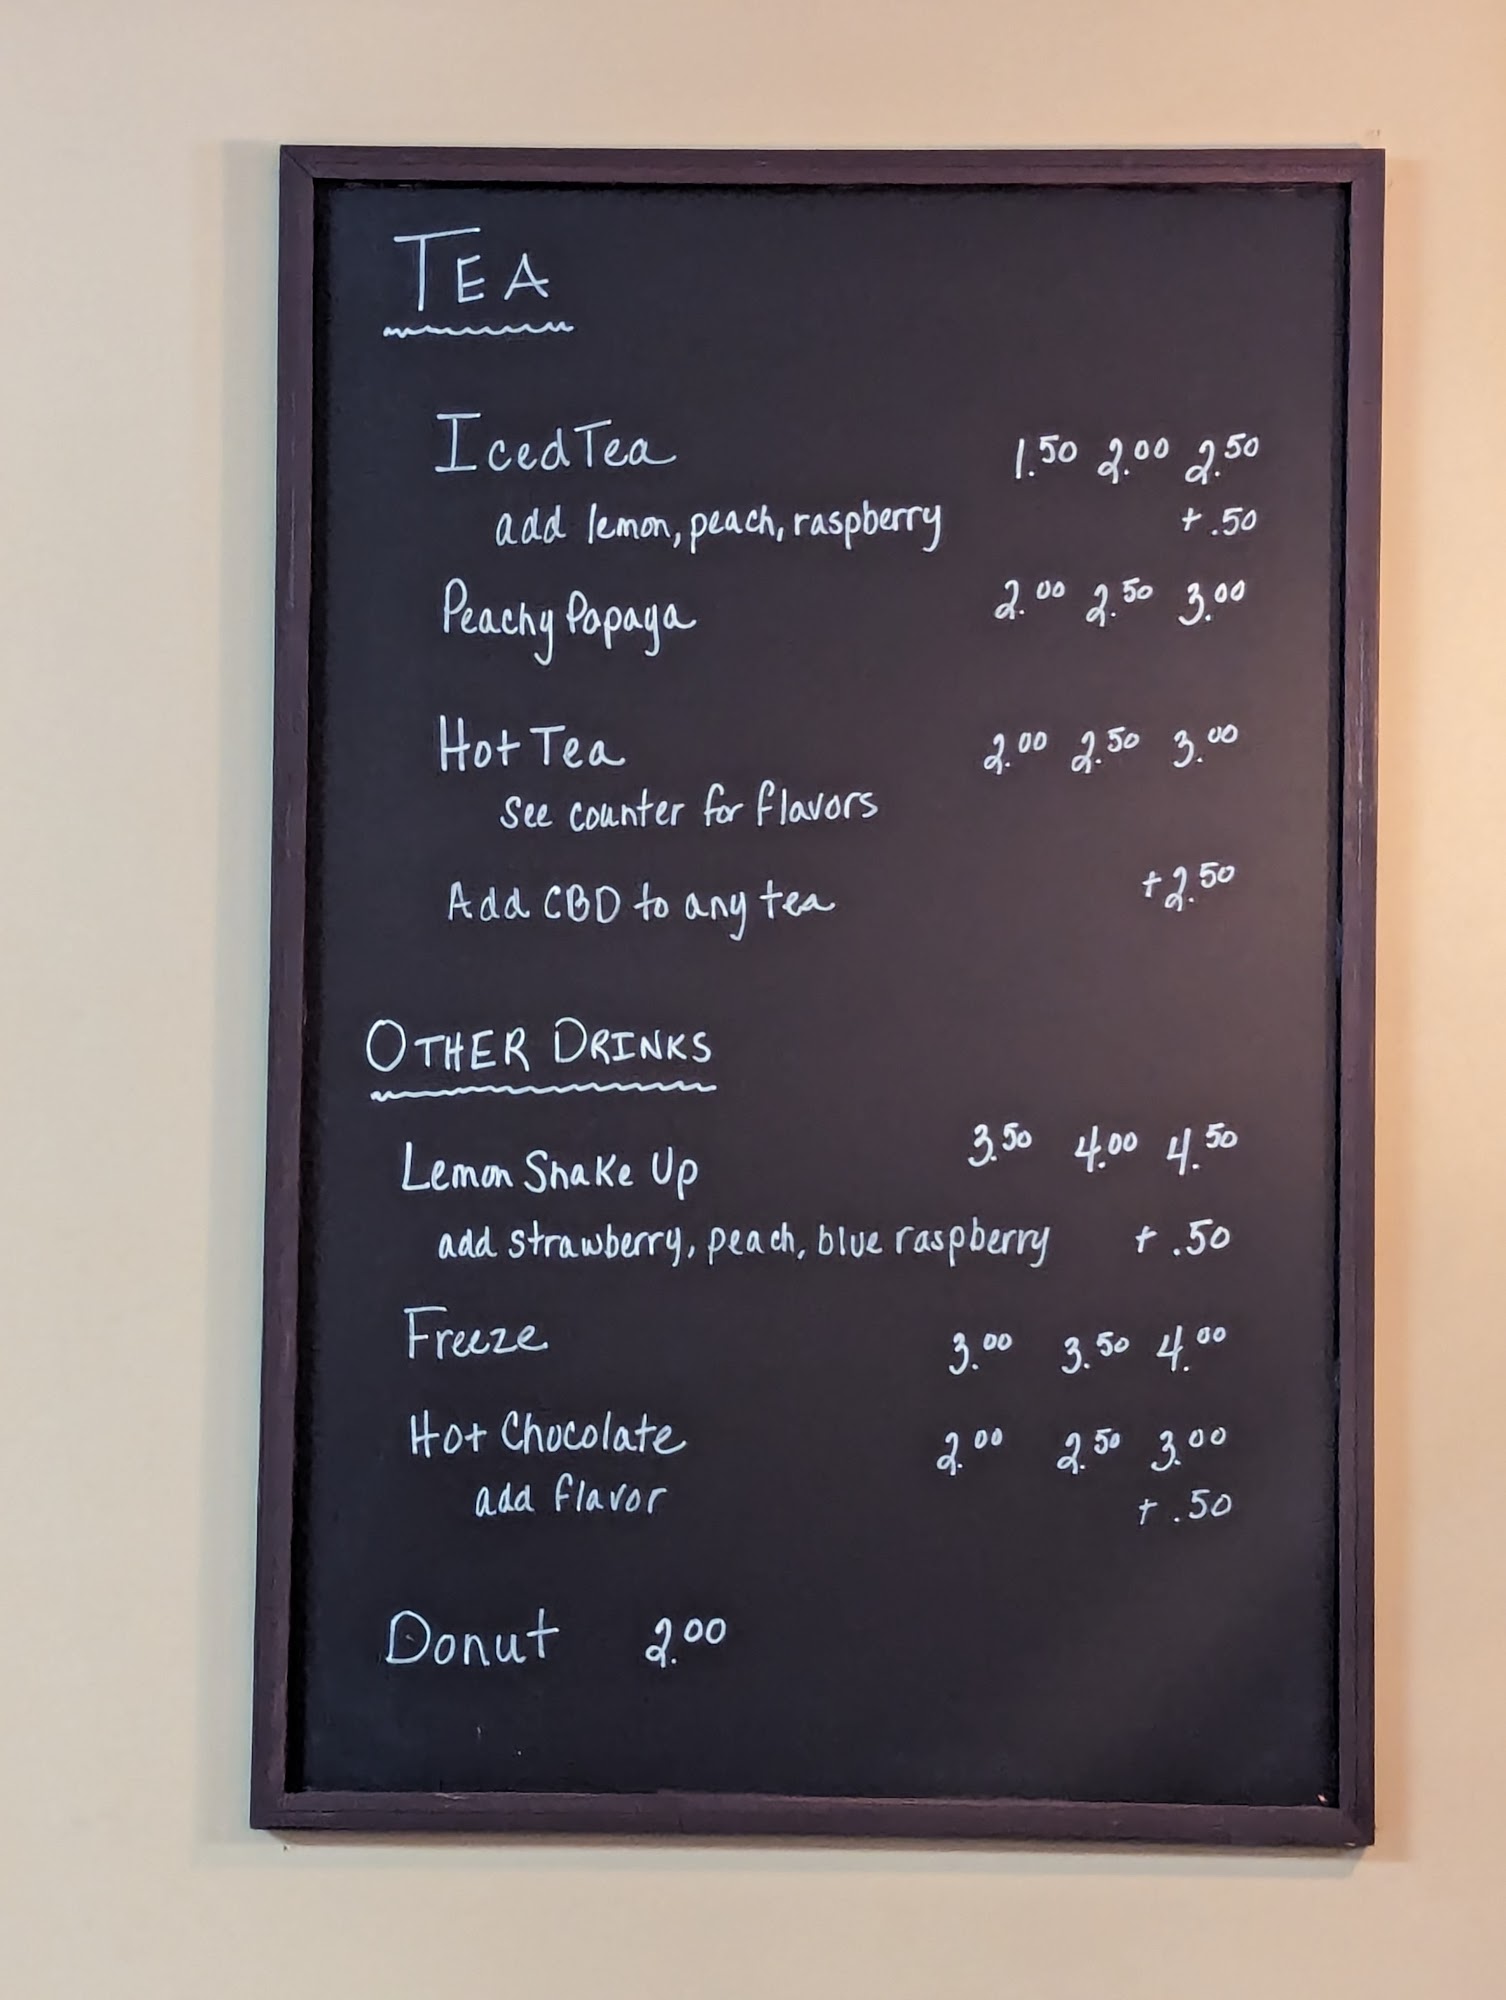 TEA
Iced Tea 1.50 2.00 2.50
add lemon, peach, raspberry + .50
Peachy Papaya 2.00 2.50 3.00
Hot Tea 2.00 2.50 3.00
See counter for flavors
Add CBD to any tea +2.50
OTHER DRINKS
Lemon Shake Up 3.50 4.00 4.50
add strawberry, peach, blue raspberry + .50
Freeze 3.00 3.50 4.00
Hot Chocolate 2.00 2.50 3.00
add flavor + .50
Donut 2.00